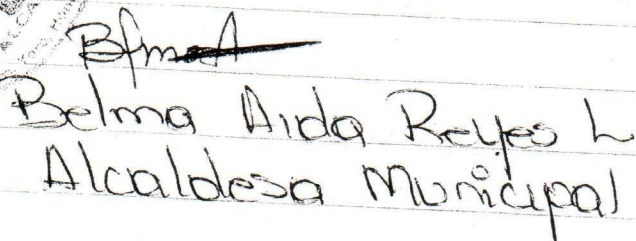 Belma Aida Reyes L
Alcaldesa Municipal